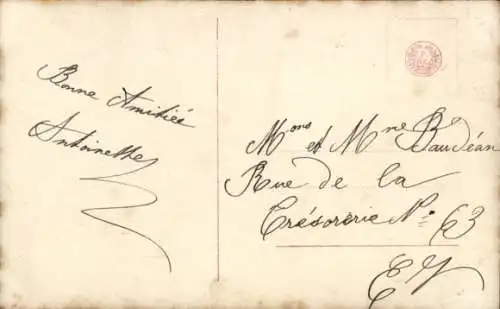 Bonne Amitiée
Antoinette
Mons et Mme Baudéan
Rue de la
Trésorerie No: 63
EV